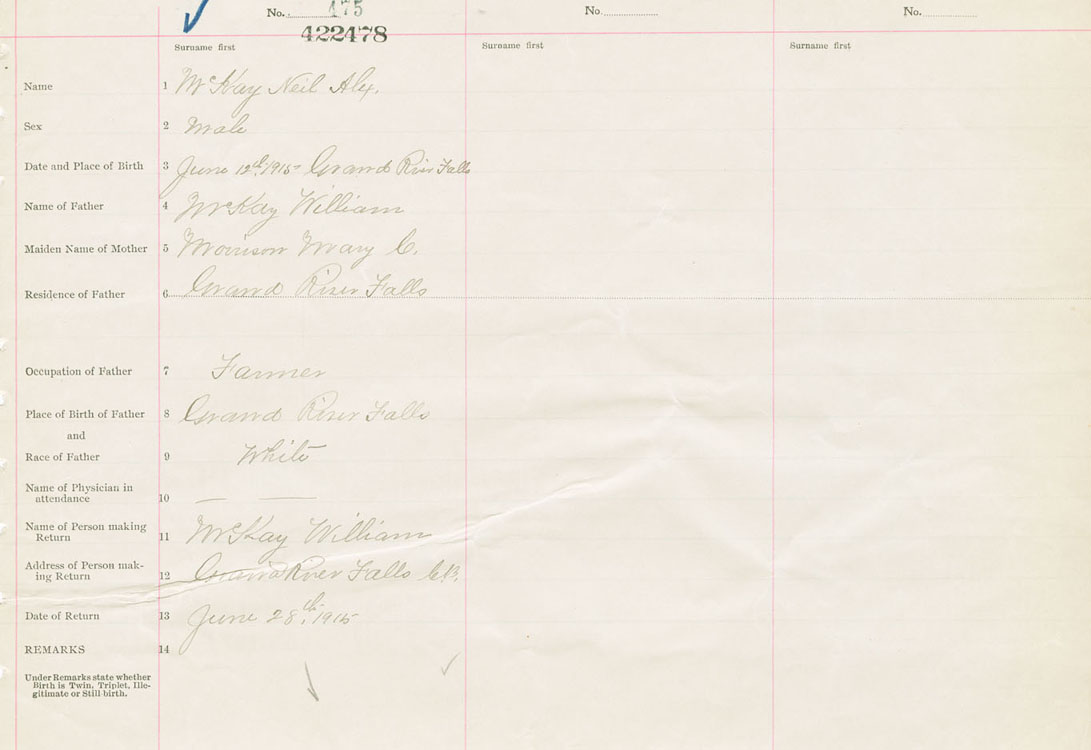 No. 175 No. No.
422478
Surname first Surname first Surname first
Name 1 McKay Neil Alex.
Sex 2 Male
Date and Place of Birth 3 June 12th 1915 - Grand River Falls
Name of Father 4 McKay William
Maiden Name of Mother 5 Morrison Mary C.
Residence of Father 6 Grand River Falls
Occupation of Father 7 Farmer
Place of Birth of Father 8 Grand River Falls
and
Race of Father 9 White
Name of Physician in
attendance 10 — —
Name of Person making
Return 11 McKay William
Address of Person mak-
ing Return 12 Grand River Falls C.B.
Date of Return 13 June 28th. 1915
REMARKS 14
Under Remarks state whether
Birth is Twin, Triplet, Ille-
gitimate or Still birth.